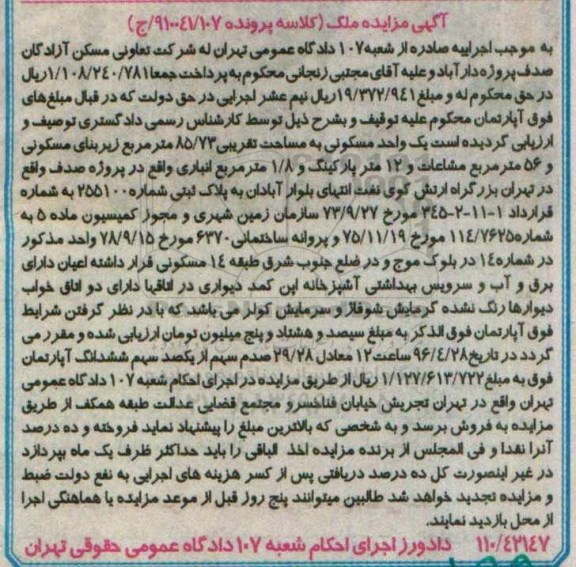 آگهی مزایده ملک (کلاسه پرونده ۹۱۰۰۴۱/۱۰۷/ج)
به موجب اجراییه صادره از شعبه۱۰۷ دادگاه عمومی تهران له شرکت تعاونی مسکن آزادگان
صدف پروژه دارآباد و علیه آقای مجتبی زنجانی محکوم به پرداخت جمعا۱/۱۰۸/۲۴۰/۷۸۱ریال
در حق محکوم له و مبلغ۱۹/۳۷۲/۹۴۱ریال نیم عشر اجرایی در حق دولت که در قبال مبلغ‌های
فوق آپارتمان محکوم علیه توقیف و بشرح ذیل توسط کارشناس رسمی دادگستری توصیف و
ارزیابی گردیده است یک واحد مسکونی به مساحت تقریبی۸۵/۷۳ متر مربع زیربنای مسکونی
و ۵۶ متر مربع مشاعات و ۱۲ متر پارکینگ و ۱/۸ متر مربع انباری واقع در پروژه صدف واقع
در تهران بزرگراه ارتش کوی نفت انتهای بلوار آبادان به پلاک ثبتی شماره۲۵۵۱۰۰ به شماره
قرارداد ۱-۱۱-۲-۳۴۵ مورخ ۷۳/۹/۲۷ سازمان زمین شهری و مجوز کمیسیون ماده ۵ به
شماره۱۱۴/۷۶۲۵ مورخ ۷۵/۱۱/۱۹ و پروانه ساختمانی۶۳۷۰ مورخ ۷۸/۹/۱۵ واحد مذکور
در شماره۱۴ در بلوک موج و در ضلع جنوب شرق طبقه ۱۴ مسکونی قرار داشته اعیان دارای
برق و آب و سرویس بهداشتی آشپزخانه اپن کمد دیواری در اتاقها دارای دو اتاق خواب
دیوارها رنگ نشده گرمایش شوفاژ و سرمایش کولر می باشد که با در نظر گرفتن شرایط
فوق آپارتمان فوق الذکر به مبلغ سیصد و هشتاد و پنج میلیون تومان ارزیابی شده و مقرر می
گردد در تاریخ۹۶/۴/۲۸ ساعت۱۲ معادل ۲۹/۲۸ صدم سهم از یکصد سهم ششدانگ آپارتمان
فوق به مبلغ۱/۱۲۷/۶۱۳/۷۲۲ ریال از طریق مزایده در اجرای احکام شعبه ۱۰۷ دادگاه عمومی
تهران واقع در تهران تجریش خیابان فناخسرو مجتمع قضایی عدالت طبقه همکف از طریق
مزایده به فروش برسد و به شخصی که بالاترین مبلغ را پیشنهاد نماید فروخته و ده درصد
آنرا نقدا و فی المجلس از برنده مزایده اخذ الباقی را باید حداکثر ظرف یک ماه بپردازد
در غیر اینصورت کل ده درصد دریافتی پس از کسر هزینه های اجرایی به نفع دولت ضبط
و مزایده تجدید خواهد شد طالبین میتوانند پنج روز قبل از موعد مزایده با هماهنگی اجرا
از محل بازدید نمایند.
۱۱۰/۴۲۱۴۷ دادورز اجرای احکام شعبه ۱۰۷ دادگاه عمومی حقوقی تهران